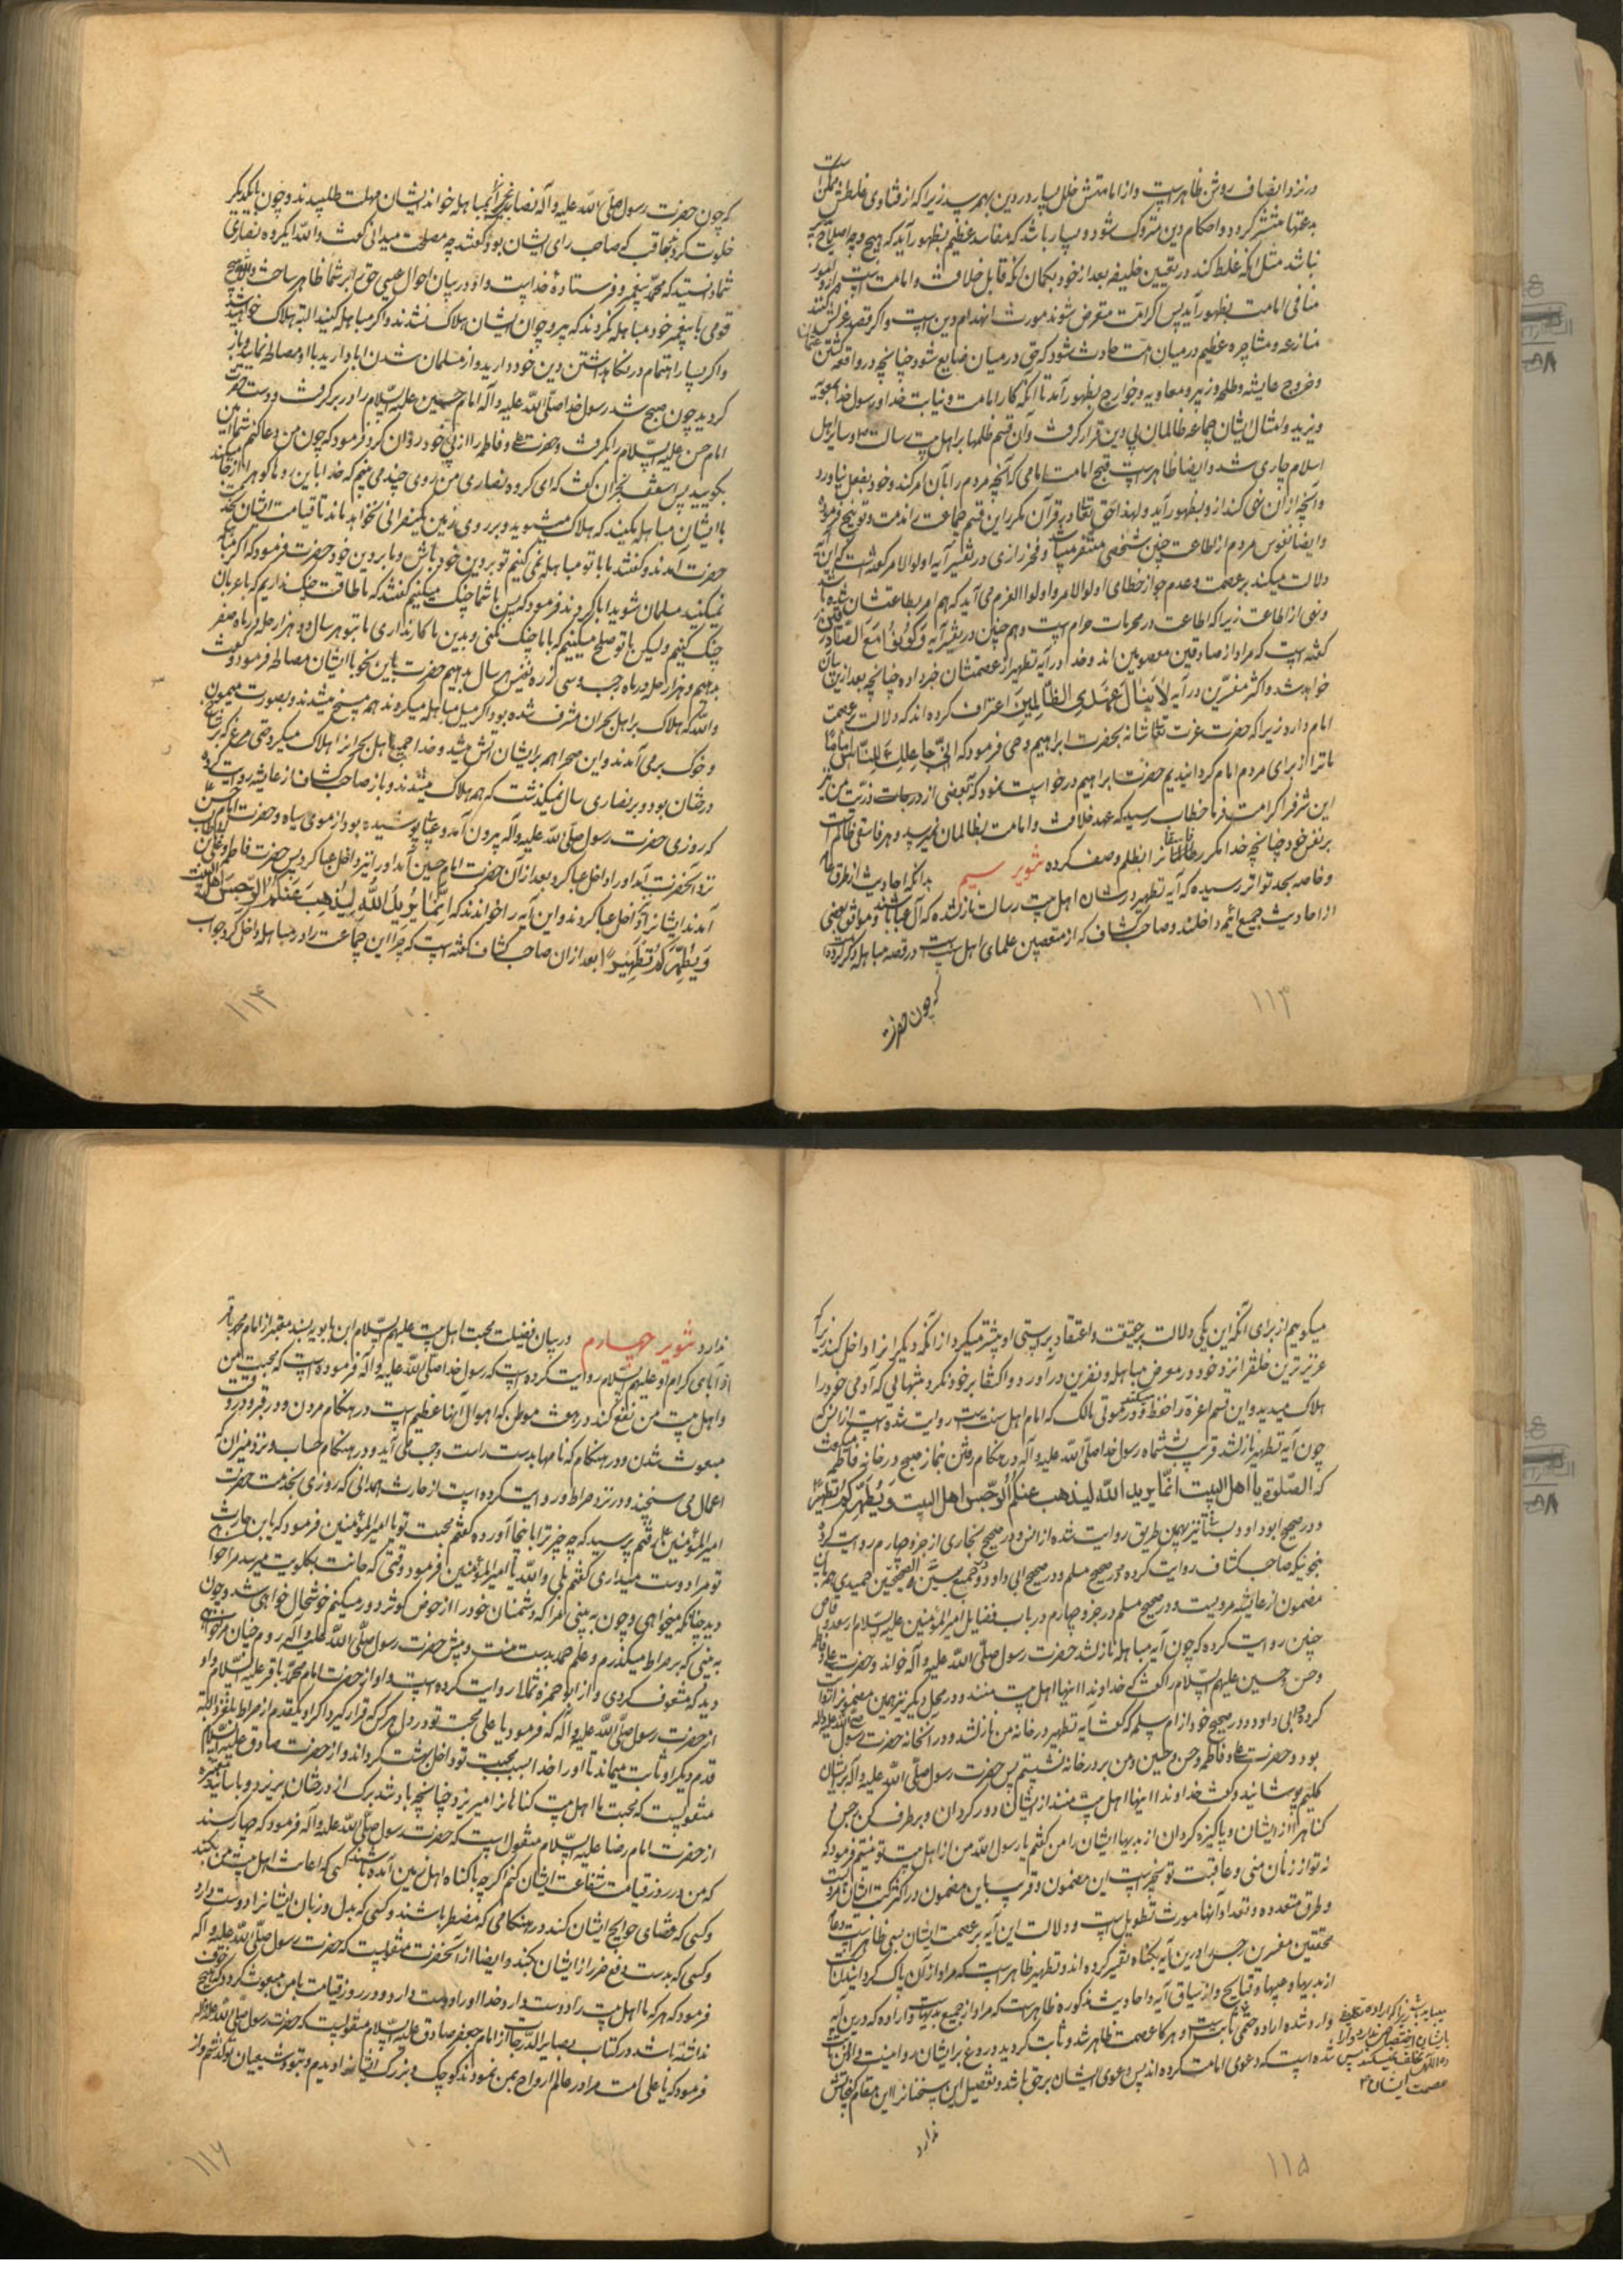 در نزد انصاف روشن ظاهرست و از امامتش خلل بسیار در دین بهم رسد زیرا که از فتاوی غلطش ممکن است
بدعتها منتشر گردد و احکام دین متروک شود و بسیار باشد که مفاسد عظیم بظهور آید که هیچ وجه اصلاح پذیر
نباشد مثل آنکه غلط کند در تعیین خلیفه بعد از خود بگمان آنکه قابل خلافت و امامت است و از او امور
منافی امامت بظهور آید پس اگر امت متعرض شوند مورث انهدام دین است و اگر تعرض کنند
منازعه و مشاجره عظیم در میان امت حادث شود که حق در میان ضایع شود چنانچه در واقعه کشتن عثمان
و خروج عایشه و طلحه و زبیر و معاویه و خوارج بظهور آمد تا آنکه کار امامت و نیابت خدا و رسول خدا بمعویه
و یزید و امثال ایشان جماعه ظالمان بی دین قرار گرفت و آن قسم ظلمها بر اهل بیت رسالت و سایر اهل
اسلام جاری شد و ایضا ظاهرست قبح امامت امامی که آنچه مردم را بآن امر کند و خود بفعل نیاورد
و آنچه از آن نهی کند از و بظهور آید و لهذا حق تعالی در قرآن مکرر این قسم جماعت را مذمت و توبیخ فرموده
و ایضا نفوس مردم از اطاعت چنین شخصی متنفر میباشد و فخر رازی در تفسیر آیه اولو الامر گفته است که این آیه
دلالت میکند بر عصمت و عدم جواز خطای اولوا الامر و اولوا العزم می آید که هم امر بطاعتشان شده باشد
و نهی از اطاعت زیرا که اطاعت در محرمات حرام است و هم چنین در تفسیر آیه وَكُونُوا مَعَ الصَّادِقِينَ
گفته است که مراد از صادقین معصومین اند و خدا در آیه تطهیر از عصمتشان خبر داده چنانچه بعد از این بیان
خواهد شد و اکثر مفسرین در آیه لَا يَنَالُ عَهْدِي الظَّالِمِينَ اعتراف کرده اند که دلالت بر عصمت
امام دارد زیرا که حضرت عزت تعالی شانه بحضرت ابراهیم وحی فرمود که اِنّی جاعِلُكَ لِلنّاسِ اِمامًا
ما ترا از برای مردم امام گردانیدیم حضرت ابراهیم درخواست نمود که بعضی از درجات ذریت من نیز
این شرف را کرامت فرما خطاب رسید که عهد خلافت و امامت بظالمان نمیرسد و هر فاسقی ظالم است
بر نفس خود چنانچه خدا مکرر فاسقان را بظلم وصف کرده تنویر سیم بدانکه احادیث از طرق عامه
و خاصه بحد تواتر رسیده که آیه تطهیر در شان اهل بیت رسالت نازل شده که آل عبا باشند و موافق بعضی
از احادیث جمیع ائمه داخلند و صاحب کشاف که از متعصبین علمای اهل سنت است در قصه مباهله ذکر کرده
که چون حضرت
۱۱۳
که چون حضرت رسول صلی الله علیه و آله نصارای نجران را بمباهله خواند ایشان مهلت طلبیدند و چون با یکدیگر
خلوت کردند بعاقب که صاحب رای ایشان بود گفتند چه مصلحت میدانی گفت والله ای گروه نصاری
شما دانستید که محمد پیغمبر و فرستادهٔ خداست و او در بیان احوال عیسی حق را بر شما ظاهر ساخت والله هیچ
قومی با پیغمبر خود مباهله نکردند که پیر و جوان ایشان هلاک نشدند و اگر مباهله کنید البته هلاک خواهید شد
و اگر بسیار اهتمام در نگاه داشتن دین خود دارید و از مسلمان شدن ابا دارید با او مصالحه نمایید و باز
گردید چون صبح شد رسول خدا صلی الله علیه و آله امام حسین علیه السلام را در بر گرفت و دست حضرت
امام حسن علیه السلام را بگرفت و حضرت علی و فاطمه را از پی خود روان کرد و فرمود که چون من دعا کنم شما آمین
بگویید پس اسقف نجران گفت که ای گروه نصاری من روی چند می بینم که خدا باین روها کوه را از جا میکند
با ایشان مباهله مکنید که هلاک میشوید و بر روی زمین یک نصرانی نخواهد ماند تا قیامت ایشان بخدمت
حضرت آمدند و گفتند با با تو مباهله نمی کنیم تو بر دین خود باش و ما بر دین خود حضرت فرمود که اگر مباهله
نمیکنید مسلمان شوید ابا کردند فرمود که پس با شما جنگ میکنیم گفتند که ما طاقت جنگ نداریم که با عربان
جنگ کنیم و لیکن با تو صلح میکنیم که با ما جنگ نکنی و بدین ما کار نداری ما بتو هر سال دو هزار حله در ماه صفر
بدهیم و هزار حله در ماه رجب و سی زره نفیس هر سال بدهیم حضرت باین نحو با ایشان مصالحه فرمود و گفت
والله که هلاک بر اهل نجران مشرف شده بود اگر میل مباهله میکردند همه مسخ میشدند و بصورت میمون
و خوک بر می آمدند و این صحرا همه بر ایشان آتش میشد و خدا جمیع اهل نجران را هلاک میکرد حتی مرغی که بر شاخ
درختان بود و بر نصاری سال نمیگذشت که همه هلاک میشدند و باز صاحب کشاف از عایشه روایت کرده
که روزی حضرت رسول صلی الله علیه و آله بیرون آمد و عبائی پوشیده بود از موی سیاه و حضرت امام حسن
نزد آنحضرت آمد او را داخل عبا کرد بعد از آن حضرت امام حسین آمد او را نیز داخل عبا کرد پس حضرت فاطمه و علی بن ابی طالب
آمدند ایشانرا داخل عبا کردند و این آیه را خواندند که اِنَّمَا يُرِيدُ اللهُ لِيُذْهِبَ عَنْكُمُ الرِّجْسَ اَهْلَ الْبَيْتِ
وَيُطَهِّرَكُمْ تَطْهِيرًا بعد از آن صاحب کشاف گفته است که چرا این جماعت را در مباهله داخل کرد جواب
۱۱۴
میگوییم از برای آنکه این یکی دلالت بر حقیقت و اعتقاد براستی او بیشتر میکرد از آنکه دیگران را داخل کند زیرا که
عزیزترین خلق را نزد خود در معرض مباهله و نفرین در آورد و اکتفا بر خود نکرد به تنهائی که آدمی خود را
هلاک میدید و این قسم اعزه را حفظ میکند و در موتی مالک که امام اهل سنت است روایت شده است از انس که
چون آیه تطهیر نازل شد قریب بششماه رسول خدا صلی الله علیه و آله در هنگام رفتن نماز صبح در خانه فاطمه میگفت
که الصلوة یا اهل البیت انما یرید الله لیذهب عنکم الرجس اهل البیت ویطهرکم تطهیرا
و در صحیح ابو داود نیز بهمین طریق روایت شده از انس و در صحیح بخاری از جزو چهارم روایت کرده
بنحویکه صاحب کشاف روایت کرده و در صحیح مسلم و در صحیح ابی داود و در جمع بین الصحیحین حمیدی همین
مضمون از عایشه مرویست و در صحیح مسلم در جزو چهارم در باب فضایل امیر المؤمنین علیه السلام از سعد وقاص
چنین روایت کرده که چون آیه مباهله نازل شد حضرت رسول صلی الله علیه و آله خواند حضرت علی و فاطمه
و حسن و حسین علیهم السلام را گفت که خداوندا اینها اهل بیت منند و در محل دیگر نیز همین مضمون را روایت
کرده و ابی داود در صحیح خود از ام سلمه که گفت آیه تطهیر در خانه من نازل شد و در آن خانه حضرت رسول صلی الله علیه و آله
بود و حضرت علی و فاطمه و حسن و حسین و من بر در خانه نشستم پس حضرت رسول صلی الله علیه و آله بر ایشان
گلیم پوشانید و گفت خداوندا اینها اهل بیت منند از ایشان دور گردان و برطرف کن رجس و
گناه را از ایشان و پاکیزه گردان از بدیها ایشان را من گفتم یا رسول الله من از اهل بیت تو نیستم فرمود که
نه تو از زنان منی و عاقبت تو بخیر است این مضمون و قریب باین مضمون در اکثر کتب ایشان مرویست
و طرق متعدده و تعداد آنها مورث تطویل است و دلالت این آیه بر عصمت ایشان بسی ظاهر است
محققین مفسرین رجس را درین آیه بگناه تفسیر کرده اند و تطهیر ظاهر است که مراد از آن پاک گردانیدن
از بدیها و عیبها و قبایح و از سیاق آیه و احادیث مذکوره ظاهرست که مراد از جمیع بدیهاست و اراده که درین آیه
وارد شده اراده حتمی ثابت است و هرگاه عصمت ظاهر شد و ثابت گردید دروغ بر ایشان روا نیست
شده است که دعوی امامت کرده اند پس دعوی ایشان بر حق باشد و تفصیل این سخنان را این مقام گنجایش
ندارد
۱۱۵
ندارد تنویر چهارم در بیان فضیلت محبت اهل بیت علیهم السلام ابن بابویه بسند معتبر از امام محمد باقر
از آبای کرام او علیهم السلام روایت کرده است که رسول خدا صلی الله علیه و آله فرموده است که محبت من
و اهل بیت من نفع کند در هفت موطن که اهوال آنها عظیم است در هنگام مردن و در قبر و در وقت
مبعوث شدن و در هنگام که نامها بدست راست و چپ می آید و در هنگام حساب و نزد میزان که
اعمال می سنجند و در نزد صراط و روایت کرده است از حارث همدانی که روزی بخدمت حضرت
امیر المؤمنین رفتم پرسید که چه چیز ترا باینجا آورده گفتم محبت تو یا امیر المؤمنین فرمود که یا بن حارث
تو مرا دوست میداری گفتم بلی والله یا امیر المؤمنین فرمود وقتی که جانت بگلویت میرسد مرا خواهی
دید چنانکه میخواهی و چون به بینی مرا که دشمنان خود را از حوض کوثر دور میکنم خوشحال خواهی شد و چون
به بینی که بر صراط میگذرم و علم حمد بدست منست و پیش حضرت رسول صلی الله علیه و آله میروم چنان مرا خواهی
دید که مشعوف گردی و از ابو حمزه ثمالی روایت کرده است و او از حضرت امام محمد باقر علیه السلام و او
از حضرت رسول صلی الله علیه و آله که فرمود یا علی محبت تو در دل هر کس که قرار گیرد اگر او یک قدم از صراط بلغزد البته
قدم دیگر او ثابت میماند تا او را خدا بسبب محبت تو داخل بهشت گرداند و از حضرت صادق علیه السلام
منقولست که محبت ما اهل بیت گناهان را میریزد چنانچه باد شدید برگ از درختان بریزد و باسانید معتبره
از حضرت امام رضا علیه السلام منقول است که حضرت رسول صلی الله علیه و آله فرمود که چهار کسند
که من در روز قیامت شفاعت ایشان کنم اگر چه با گناه اهل زمین آمده باشند کسی که اعانت اهل بیت من بکند
و کسی که قضای حوایج ایشان کند در هنگامی که مضطر باشند و کسی که بدل و زبان ایشانرا دوست دارد
و کسی که بدست دفع ضرر از ایشان بکند و ایضا از آنحضرت منقولست که حضرت رسول صلی الله علیه و آله
فرمود که هر که ما اهل بیت را دوست دارد خدا او را دوست دارد و در روز قیامت با من مبعوث گردد که هیچ خوف
نداشته باشد و در کتاب بصایر الدرجات از امام جعفر صادق علیه السلام منقولست که حضرت رسول صلی الله علیه و آله
فرمود که یا علی امت مرا در عالم ارواح بمن نمودند کوچک و بزرگ ایشانرا دیدم و بتو و شیعیان تو گذشتم و از
۱۱۶